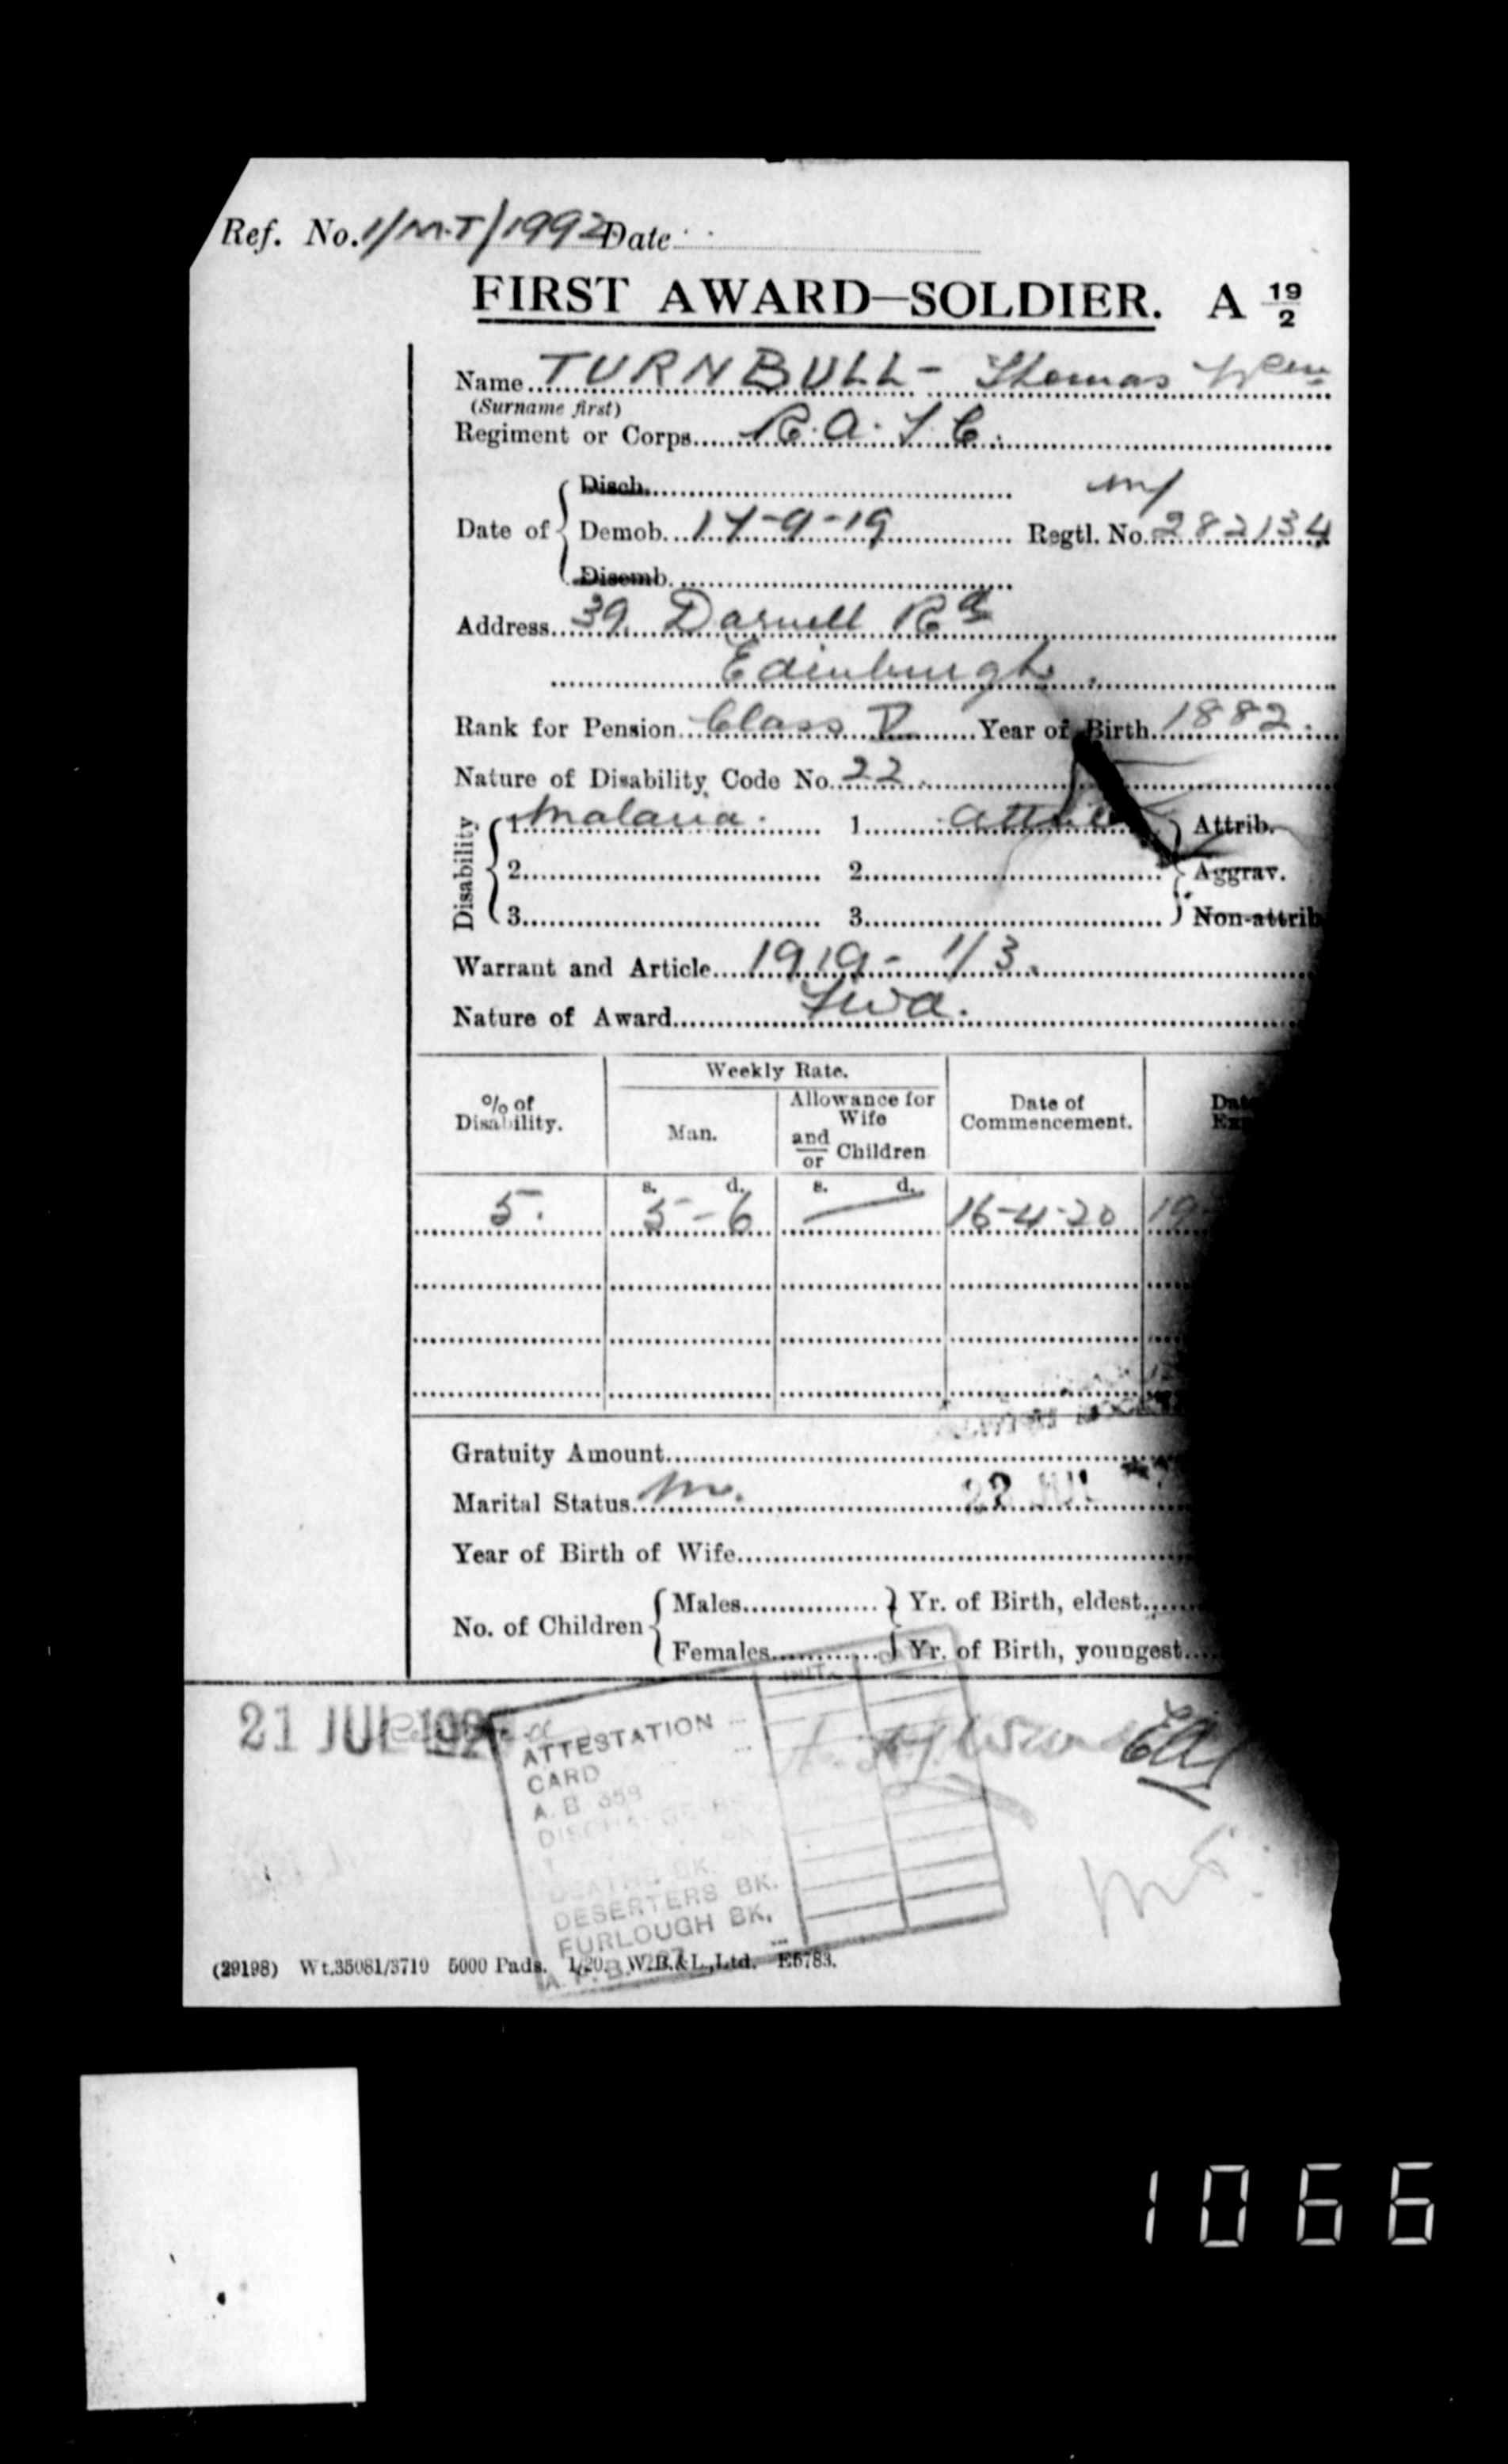 Ref. No. 1/M.T/1992 Date
FIRST AWARD—SOLDIER. A 19/2
Name TURNBULL - Thomas Wm
(Surname first)
Regiment or Corps R.A.S.C.
Disch.
M/
Date of Demob. 17-9-19 Regtl. No. 282134
Disemb.
Address 39 Darnell Rd
Edinburgh.
Rank for Pension Class V Year of Birth 1882.
Nature of Disability Code No. 22.
Disability
1 Malaria. 1 Attrib.
2 2 Aggrav.
3 3 Non-attrib
Warrant and Article 1919 - 1/3.
Nature of Award
Weekly Rate.
% of Disability. Man. Allowance for Wife and/or Children Date of Commencement.
s. d. s. d.
5. 5-6 — 16-4-20 19
Gratuity Amount
Marital Status M. 22 JUL
Year of Birth of Wife
No. of Children Males Yr. of Birth, eldest
Females Yr. of Birth, youngest
21 JUL
INIT.
ATTESTATION
CARD
A. B 359
DEATHS BK.
DESERTERS BK.
FURLOUGH BK.
(29198) Wt.35081/3710 5000 Pads. 1/20. W.B.&L.,Ltd. E5783.
1066